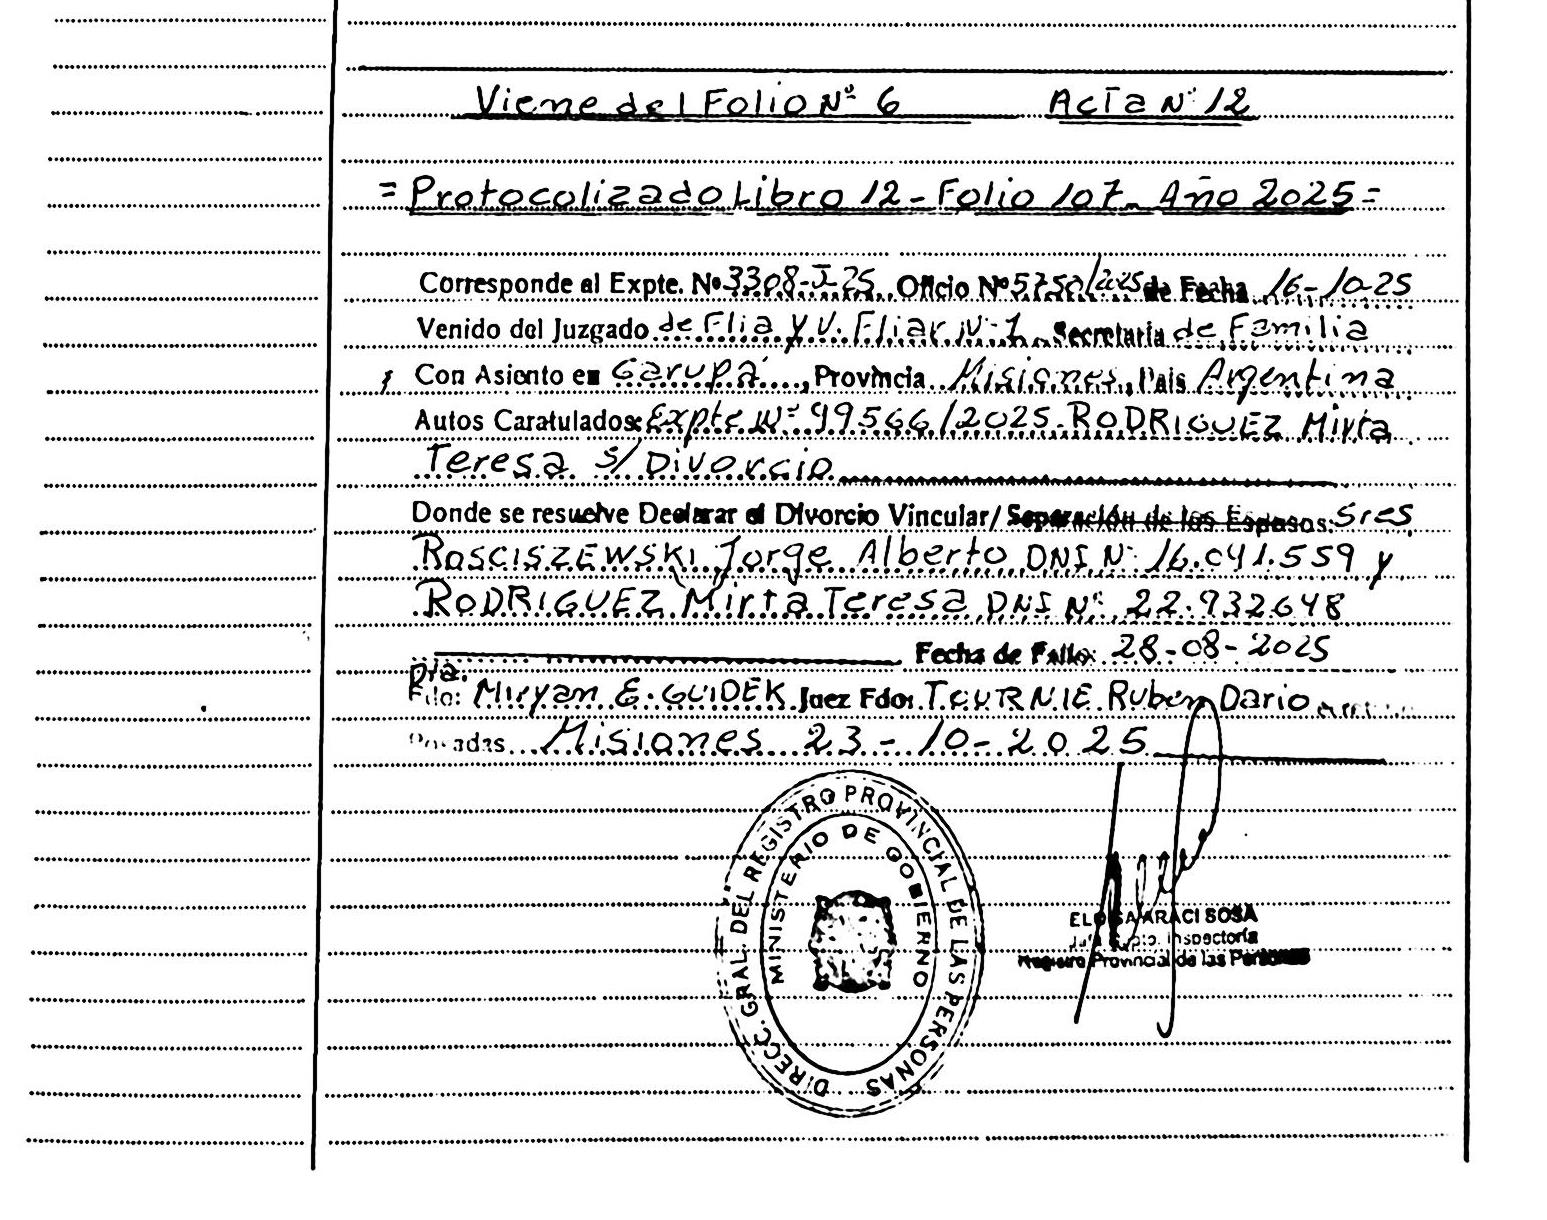 Viene del Folio Nº 6 Acta Nº 12
= Protocolizado Libro 12 - Folio 107 - Año 2025 =
Corresponde al Expte. Nº 3308-J-25 Oficio Nº 5750/2025 de Fecha 16-10-25
Venido del Juzgado de Flia y V. Fliar Nº 1 Secretaria de Familia
Con Asiento en Garupá, Provincia Misiones, País Argentina
Autos Caratulados: Expte Nº 99566/2025 - RODRIGUEZ Mirta
Teresa s/ Divorcio
Donde se resuelve Declarar el Divorcio Vincular/ Separación de los Esposos: Sres
ROSCISZEWSKI Jorge Alberto DNI Nº 16.041.559 y
RODRIGUEZ Mirta Teresa DNI Nº 22.932648
Fecha de Fallo: 28-08-2025
Dra.
Fdo: Miryam E. GUIDEK Juez Fdo: TOURNIE Ruben Dario
Posadas Misiones 23-10-2025
DIRECC. GRAL. DEL REGISTRO PROVINCIAL DE LAS PERSONAS
MINISTERIO DE GOBIERNO
ELOISA ARACI SOSA
Dpto. Inspectoría
Registro Provincial de las Personas